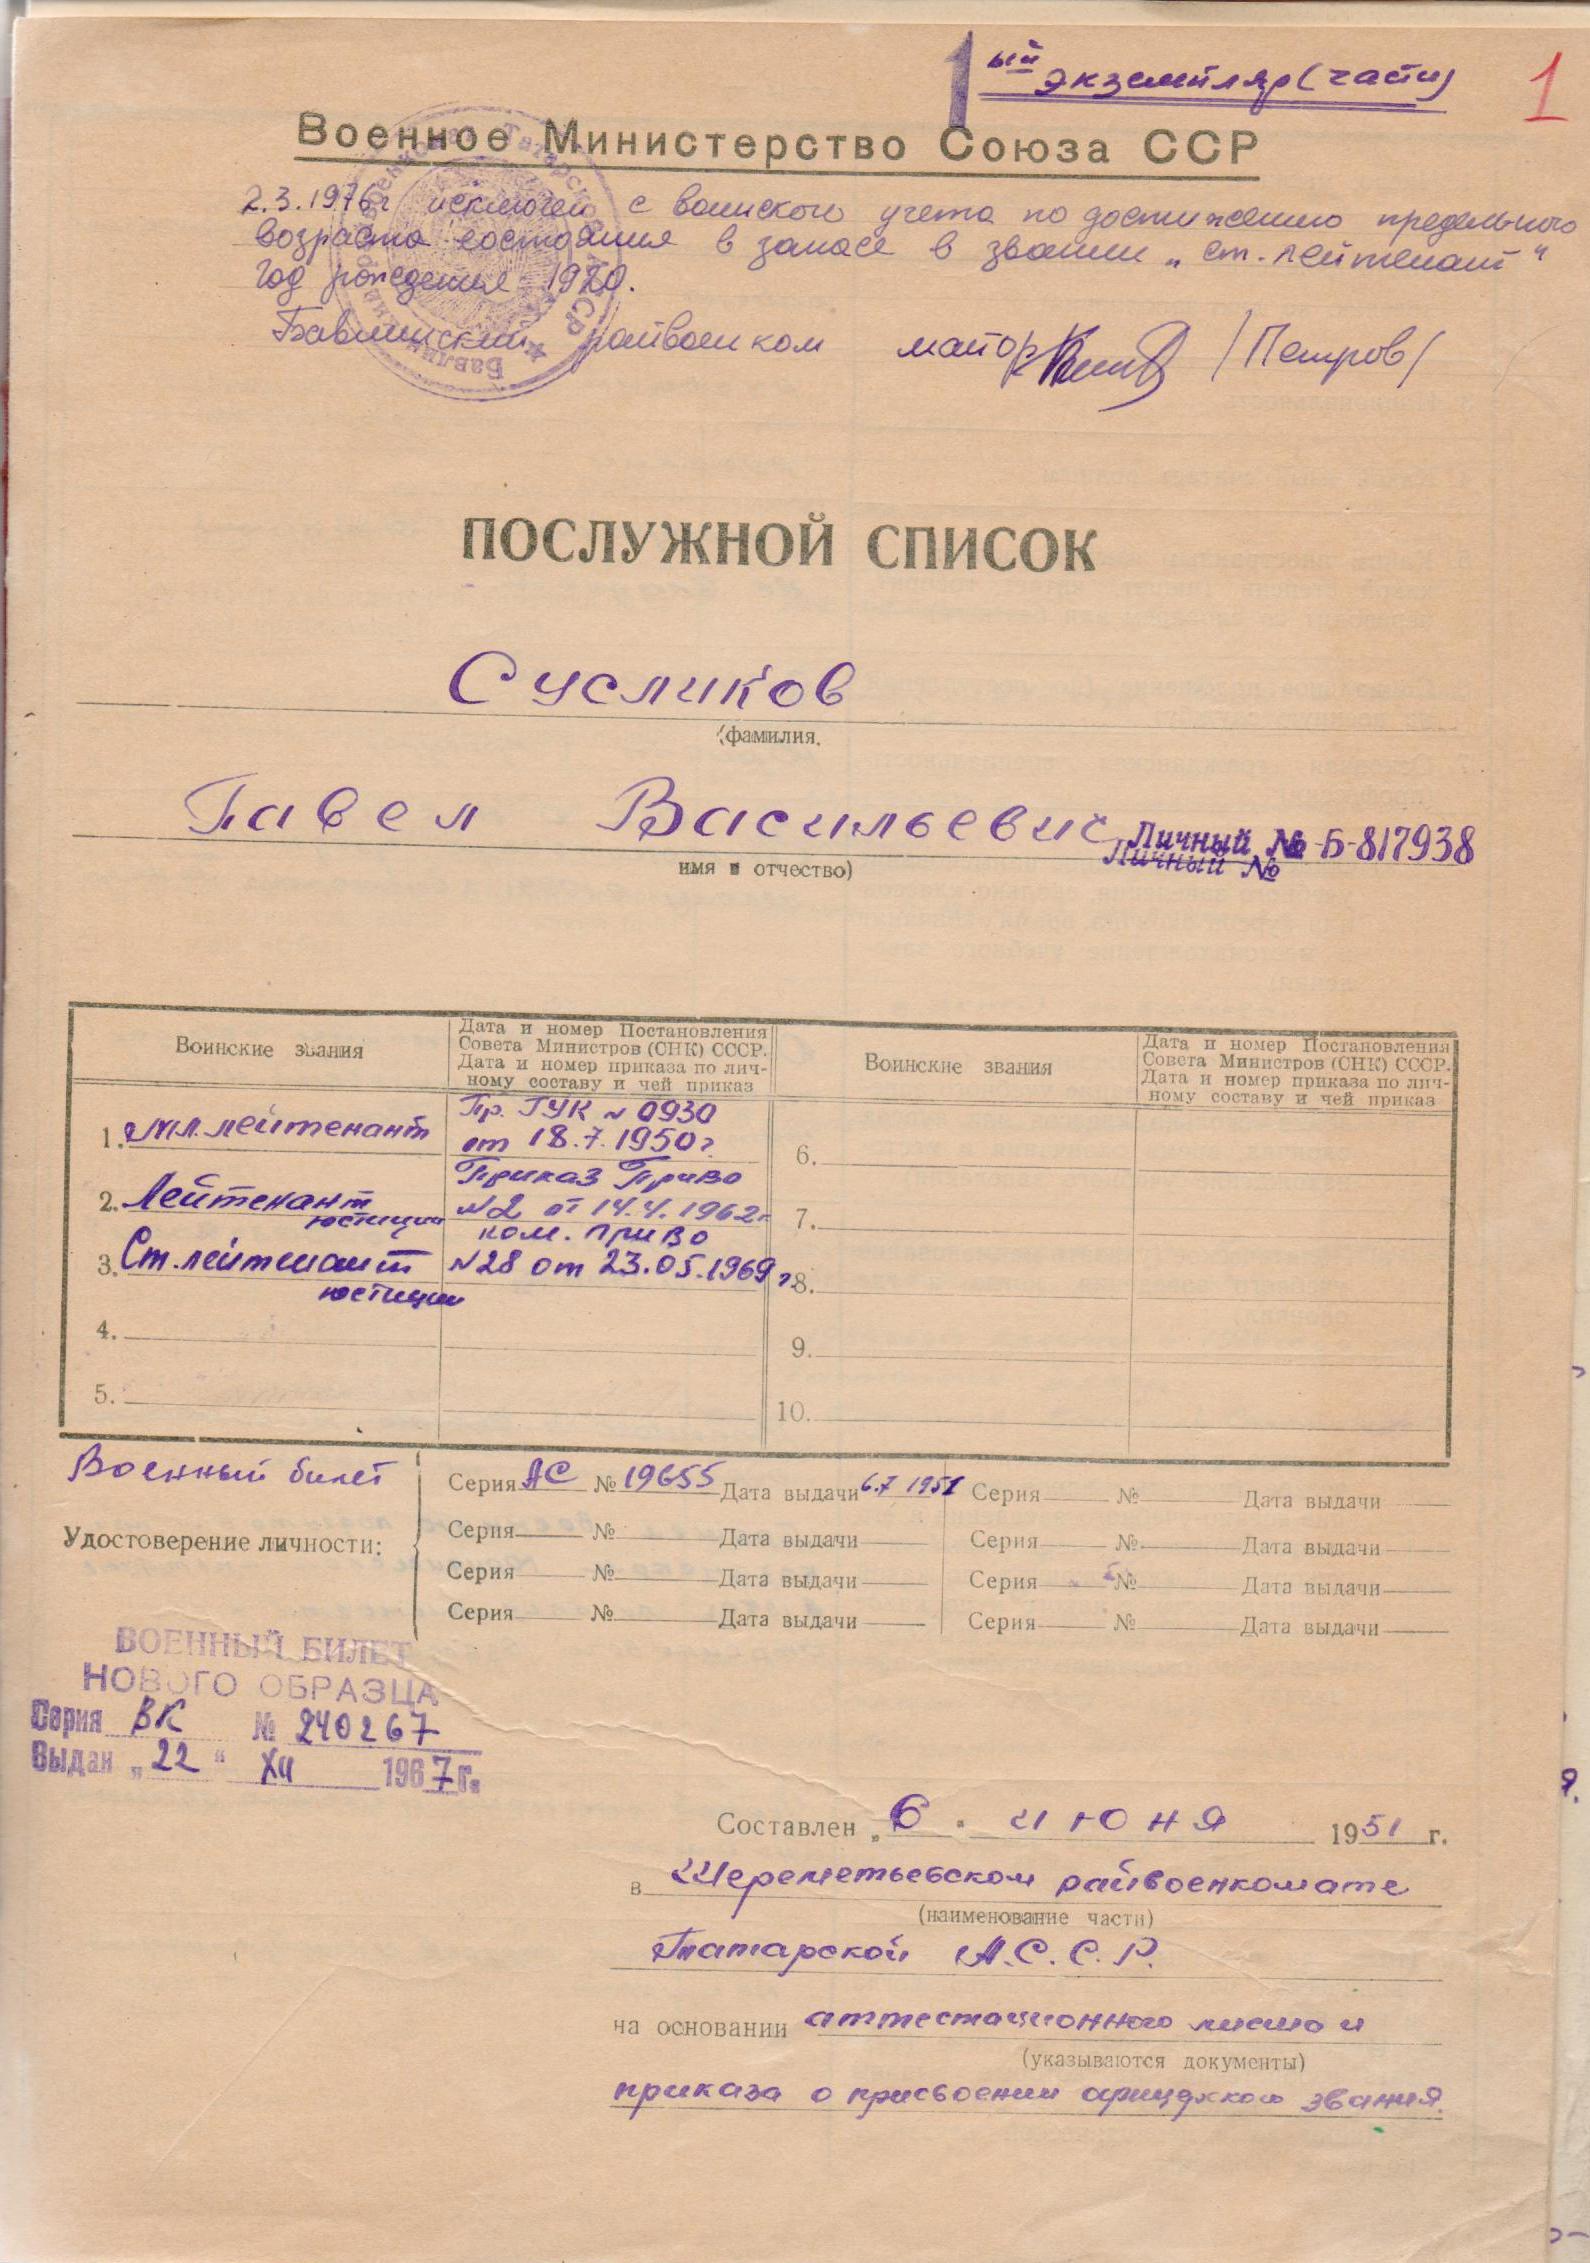 1ый экземпляр (части)
1
Военное Министерство Союза ССР
2.3.1976г исключен с воинского учета по достижению предельного
возраста состояния в запасе в звании „ст. лейтенант"
год рождения 1920.
Бавлинский райвоенком майор /Петров/
ПОСЛУЖНОЙ СПИСОК
Сусликов
(фамилия,
Павел Васильевич
Личный № Б-817938
Личный №
имя и отчество)
Воинские звания
Дата и номер Постановления
Совета Министров (СНК) СССР.
Дата и номер приказа по лич-
ному составу и чей приказ
Воинские звания
Дата и номер Постановления
Совета Министров (СНК) СССР.
Дата и номер приказа по лич-
ному составу и чей приказ
1. Мл. лейтенант
Пр. ГУК № 0930
от 18.7.1950г.
6.
2. Лейтенант
юстиции
Приказ Приво
№2 от 14.4.1962г.
7.
3. Ст. лейтенант
юстиции
ком. ПриВО
№28 от 23.05.1969 г.
8.
4.
9.
5.
10.
Военный билет
Удостоверение личности:
Серия АС № 19655 Дата выдачи 6.7 1951 Серия № Дата выдачи
Серия № Дата выдачи Серия № Дата выдачи
Серия № Дата выдачи Серия № Дата выдачи
Серия № Дата выдачи Серия № Дата выдачи
ВОЕННЫЙ БИЛЕТ
НОВОГО ОБРАЗЦА
Серия ВК № 240267
Выдан „22" XII 1967г.
Составлен „6" июня 1951 г.
в Шереметьевском райвоенкомате
(наименование части)
Татарской А.С.С.Р.
на основании аттестационного листа и
(указываются документы)
приказа о присвоении офицерского звания.